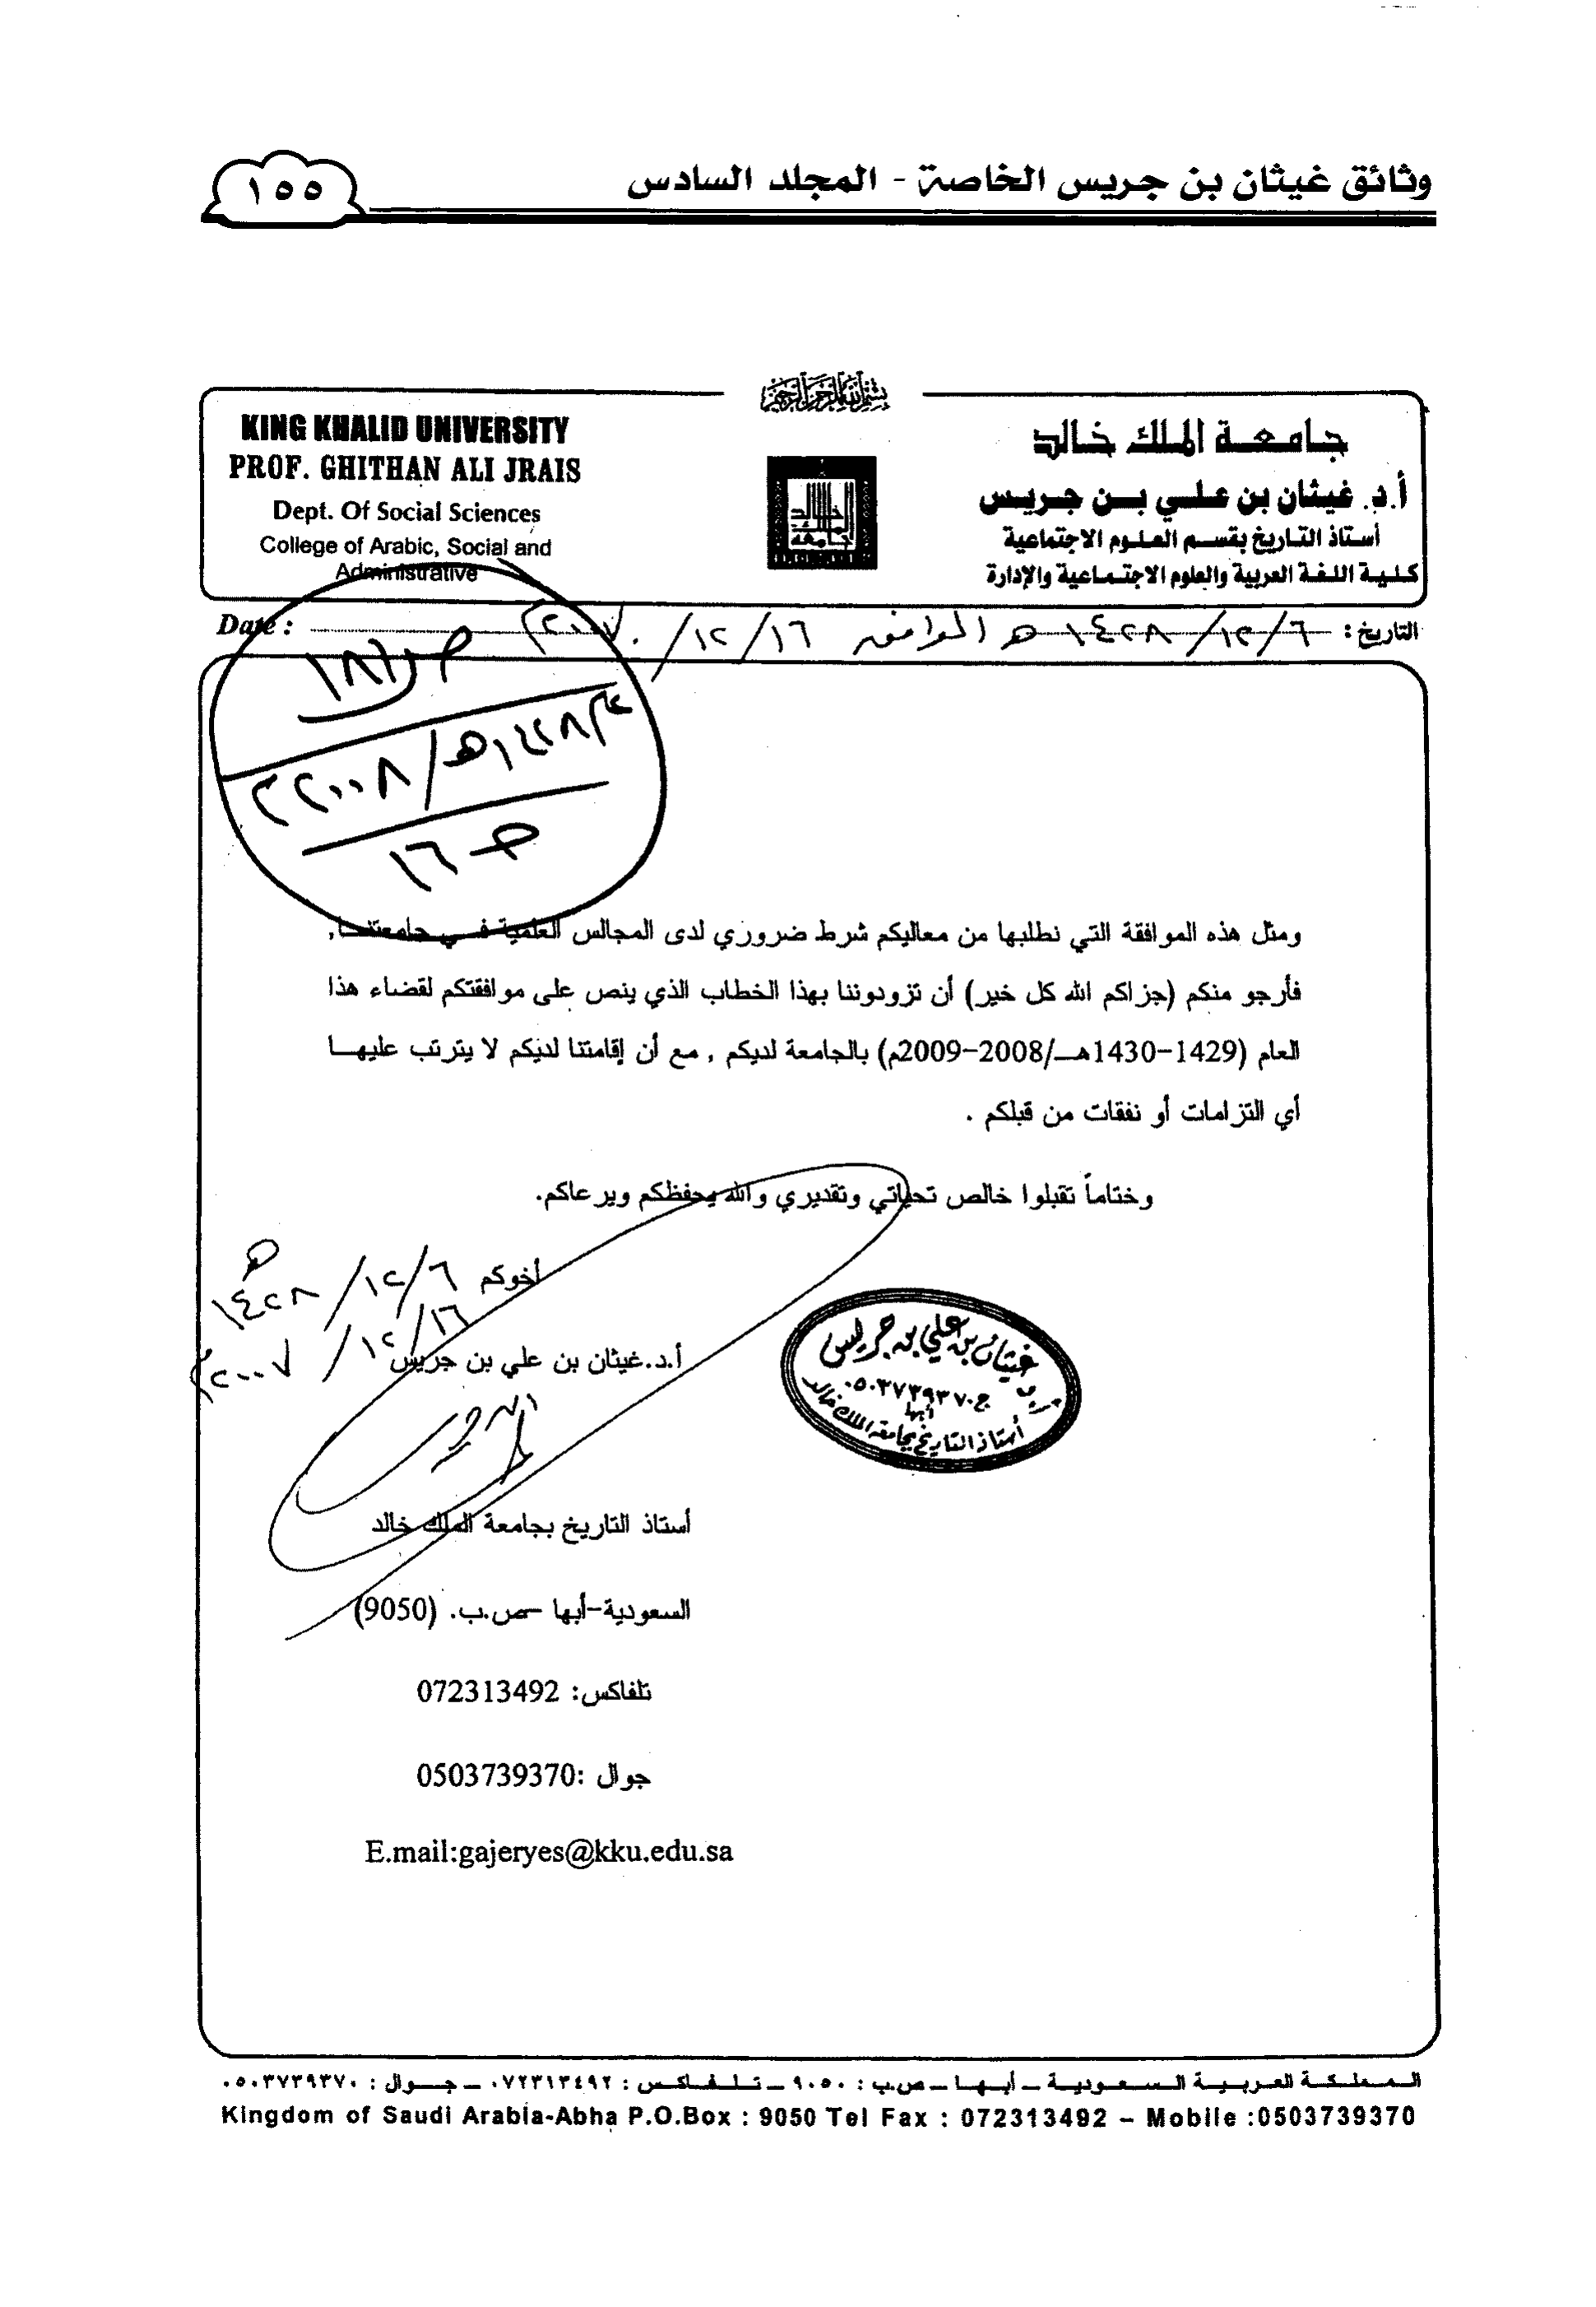 وثائق غيثان بن جريس الخاصة - المجلد السادس
١٥٥
بسم الله الرحمن الرحيم
جامعة الملك خالد
أ.د. غيثان بن علي بن جريس
أستاذ التاريخ بقسم العلوم الاجتماعية
كلية اللغة العربية والعلوم الاجتماعية والإدارة
جامعة الملك خالد
KING KHALID UNIVERSITY
PROF. GHITHAN ALI JRAIS
Dept. Of Social Sciences
College of Arabic, Social and
Administrative
التاريخ: ٦/١٢/١٤٢٨ هـ الموافق ١٦/١٢/٢٠٠٧م
Date :
/١٤٢٨هـ/٢٠٠٨م
ص ١٦
ومثل هذه الموافقة التي نطلبها من معاليكم شرط ضروري لدى المجالس العلمية في جامعتنا,
فأرجو منكم (جزاكم الله كل خير) أن تزودوننا بهذا الخطاب الذي ينص على موافقتكم لقضاء هذا
العام (1429-1430هـ/2008-2009م) بالجامعة لديكم , مع أن إقامتنا لديكم لا يترتب عليها
أي التزامات أو نفقات من قبلكم .
وختاماً تقبلوا خالص تحياتي وتقديري والله يحفظكم ويرعاكم.
أخوكم ٦/١٢/١٤٢٨هـ
١٦/١٢/٢٠٠٧م
أ.د.غيثان بن علي بن جريس
غيثان بن علي بن جريس
ج ٠٥٠٣٧٣٩٣٧٠
أبها
أستاذ التاريخ بجامعة الملك خالد
أستاذ التاريخ بجامعة الملك خالد
السعودية-أبها -ص.ب. (9050)
تلفاكس: 072313492
جوال :0503739370
E.mail:gajeryes@kku.edu.sa
المملكة العربية السعودية - أبها - ص.ب : ٩٠٥٠ - تلفاكس : ٠٧٢٣١٣٤٩٢ - جوال : ٠٥٠٣٧٣٩٣٧٠
Kingdom of Saudi Arabia-Abha P.O.Box : 9050 Tel Fax : 072313492 – Mobile :0503739370